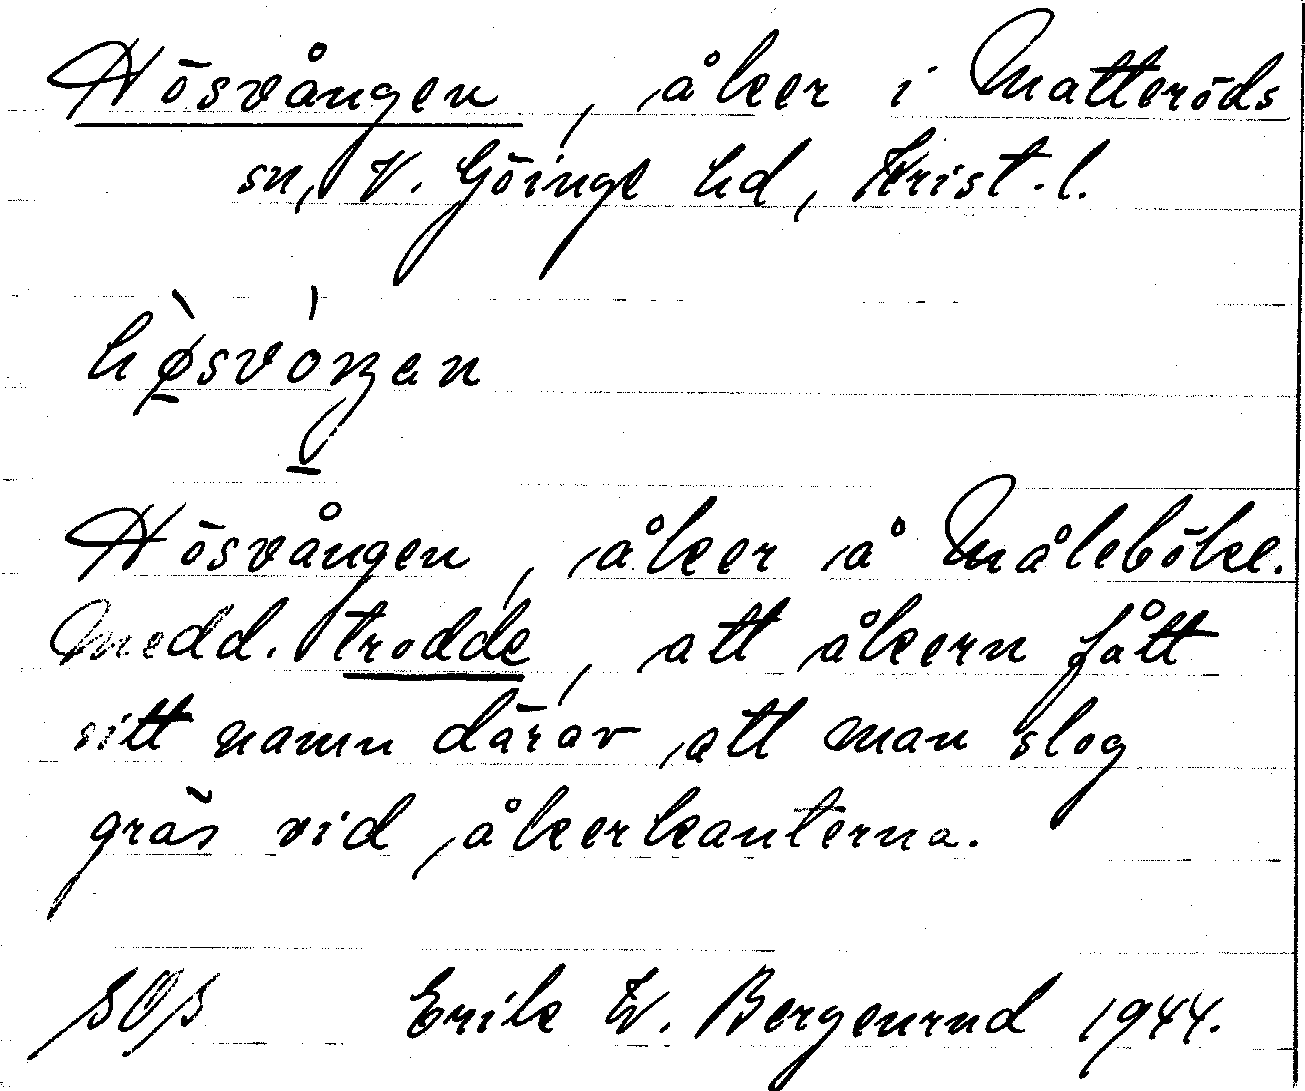 Hösvången, åker i Matteröds
sn, V. Göinge hd, Krist. l.
hø̀svóŋan
Hösvången, åker å Måleböke.
Medd. trodde, att åkern fått
sitt namn därav att man slog
gräs vid åkerkanterna.
Erik W. Bergenrud 1944.